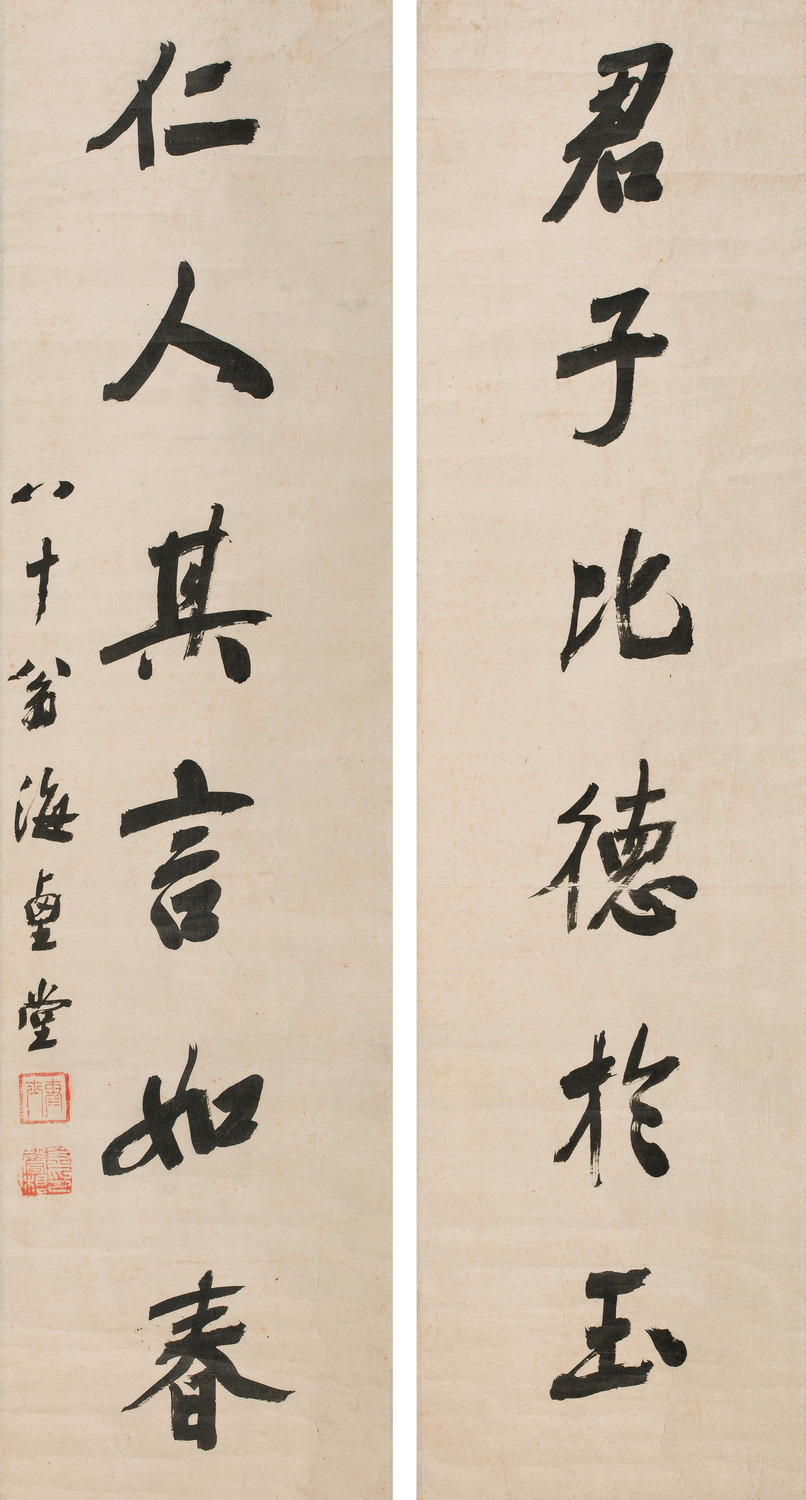 君子比德於玉
仁人其言如春
八十翁海壷堂